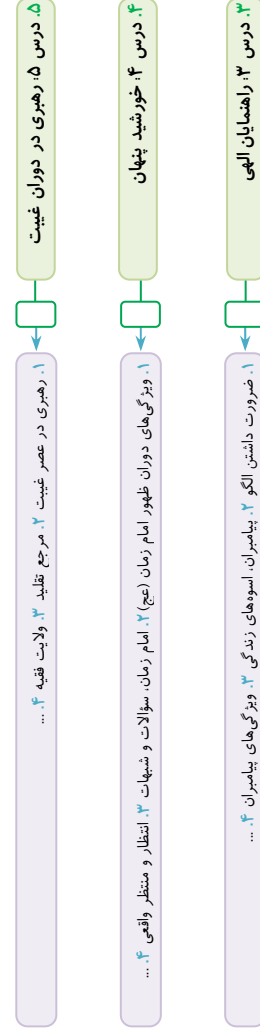 ۳. درس ۳: راهنمایان الهی
۱. ضرورت داشتن الگو ۲. پیامبران، اسوه‌های زندگی ۳. ویژگی‌های پیامبران ۴. ...
۴. درس ۴: خورشید پنهان
۱. ویژگی‌های دوران ظهور امام زمان (عج) ۲. امام زمان، سؤالات و شبهات ۳. انتظار و منتظر واقعی ۴. ...
۵. درس ۵: رهبری در دوران غیبت
۱. رهبری در عصر غیبت ۲. مرجع تقلید ۳. ولایت فقیه ۴. ...